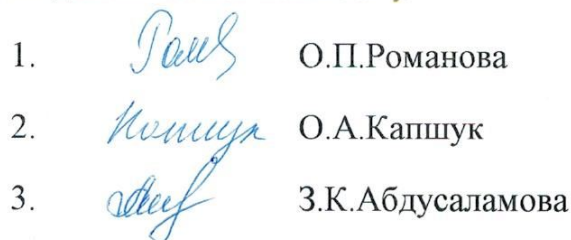 1. О.П.Романова
2. О.А.Капшук
3. З.К.Абдусаламова